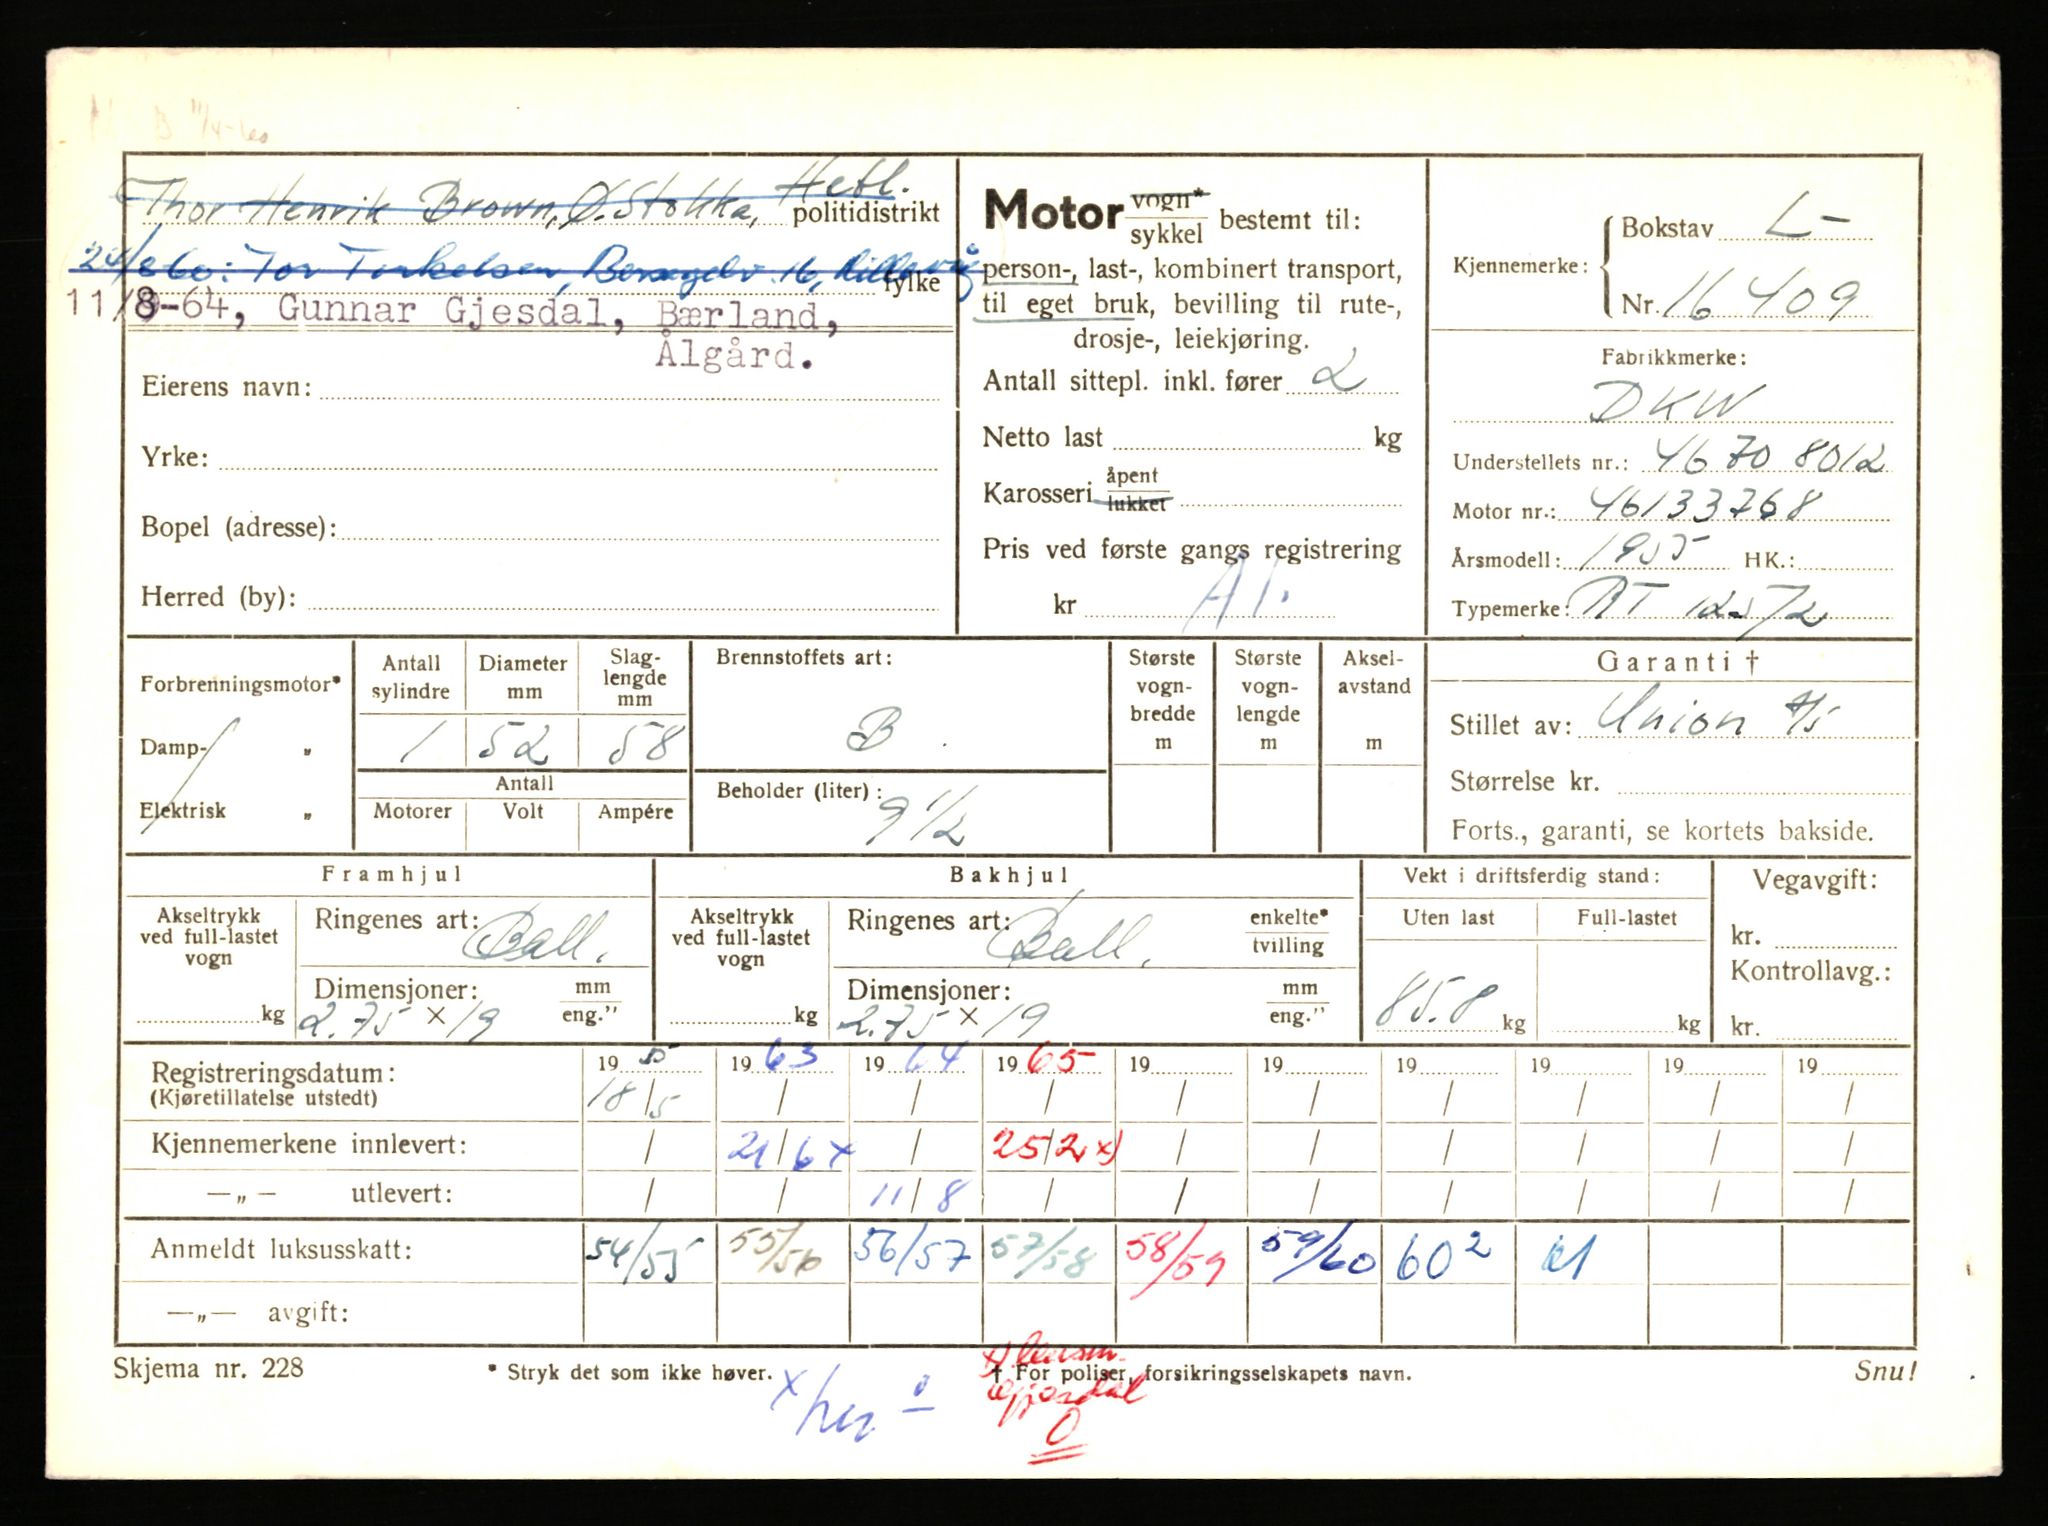 Thor Henrik Brown, Ø. Stokka, Hetl.
politidistrikt
24/8 60: Tor Torkelsen, 16, Hillevåg
fylke
11/8-64, Gunnar Gjesdal, Bærland,
Ålgård.
Eierens navn:
Yrke:
Bopel (adresse):
Herred (by):
Motor vogn* / sykkel bestemt til:
person-, last-, kombinert transport,
til eget bruk, bevilling til rute-,
drosje-, leiekjøring.
Antall sittepl. inkl. fører 2
Netto last kg
Karosseri åpent / lukket
Pris ved første gangs registrering
kr A/.
Kjennemerke: Bokstav L-
Nr. 16409
Fabrikkmerke:
DKW
Understellets nr.: 46708012
Motor nr.: 46133768
Årsmodell: 1955 HK.:
Typemerke: RT 125/2
Forbrenningsmotor*
Damp- „
Elektrisk „
Antall sylindre Diameter mm Slag-lengde mm
1 52 58
Antall
Motorer Volt Ampére
Brennstoffets art:
B
Beholder (liter):
9 1/2
Største vogn-bredde m
Største vogn-lengde m
Aksel-avstand m
Garanti †
Stillet av: Union A/S
Størrelse kr.
Forts., garanti, se kortets bakside.
Framhjul
Akseltrykk ved full-lastet vogn
kg
Ringenes art: Ball.
Dimensjoner: mm / eng."
2.75 x 19
Bakhjul
Akseltrykk ved full-lastet vogn
kg
Ringenes art: Ball. enkelte* / tvilling
Dimensjoner: mm / eng."
2.75 x 19
Vekt i driftsferdig stand:
Uten last Full-lastet
85.8 kg kg
Vegavgift:
kr.
Kontrollavg.:
kr.
Registreringsdatum: 1955 1963 1964 1965 19 19 19 19 19 19
(Kjøretillatelse utstedt) 18/5 / / / / / / / / /
Kjennemerkene innlevert: / 21/6 x / 25/2 x) / / / / / /
—„— utlevert: / / 11/8 / / / / / / /
Anmeldt luksusskatt: 54/55 55/56 56/57 57/58 58/59 59/60 60² 61
—„— avgift:
Skjema nr. 228
* Stryk det som ikke høver.
† For poliser, forsikringsselskapets navn.
Snu!
x
x)
0